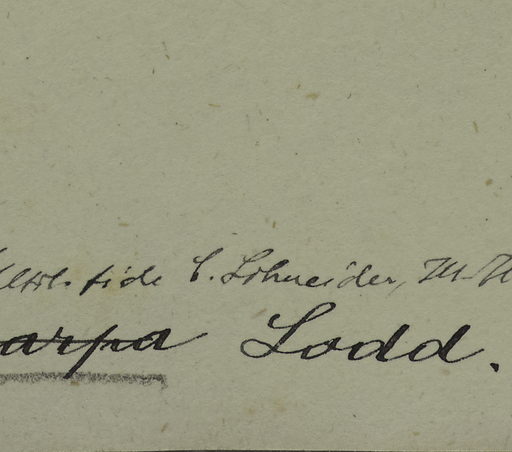 fide C. Schneider,
arpa Lodd.